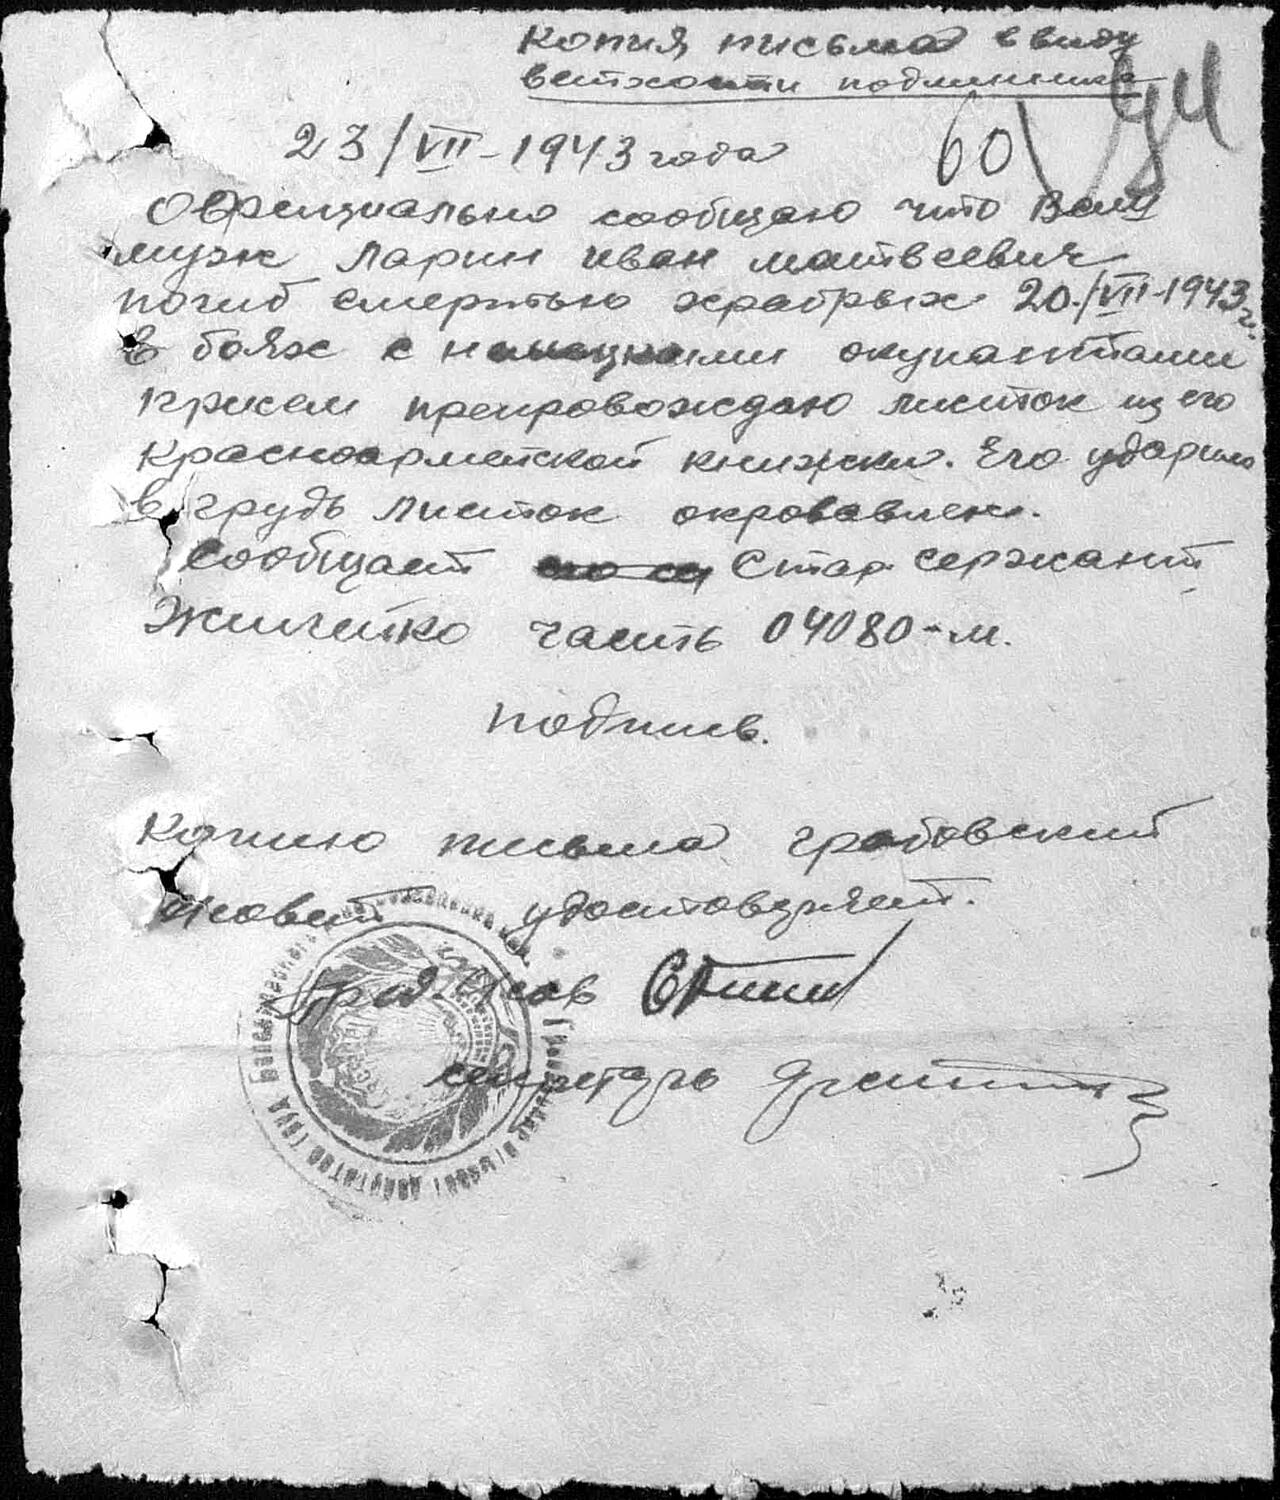 Копия письма ввиду
ветхости подлинника
94
60
23/VII-1943 года
Официально сообщаю что Ваш
муж Ларин Иван Матвеевич
погиб смертью храбрых 20./VII-1943 г.
в боях с немецкими окупантами
присем препровождаю листок из его
Красноармейской книжки. Его ударило
в грудь листок окровавлен.
Сообщает Стар. сержант
Жилейко часть 04080-м.
подпись.
Копию письма грабовский
с/совет удостоверяет.
Пред. с/сов
секретарь